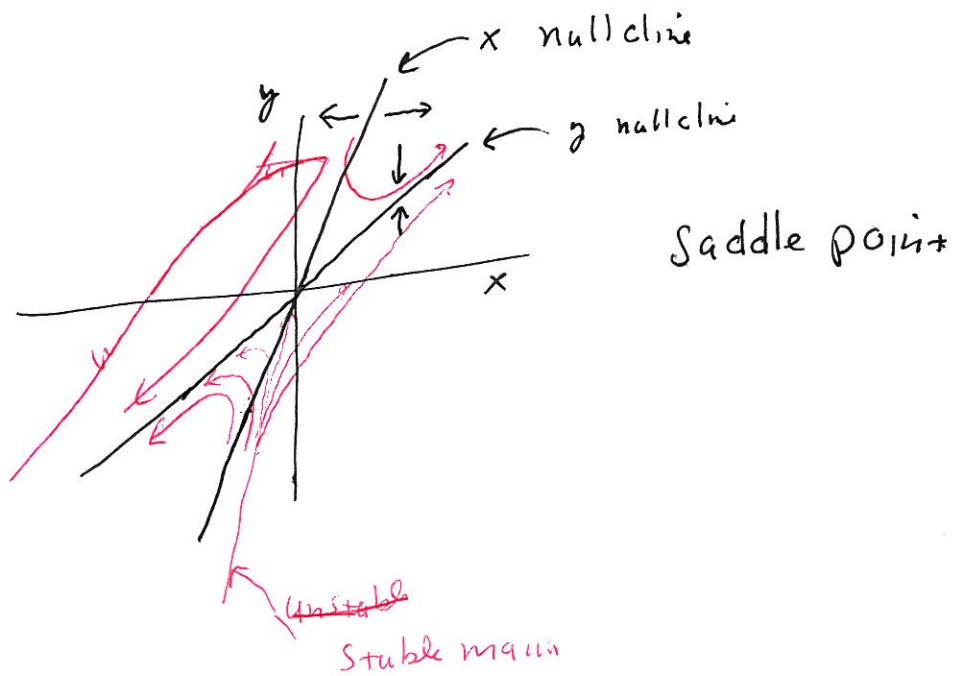 x nullcline
y
y nullcline
Saddle point
x
Unstable
Stable